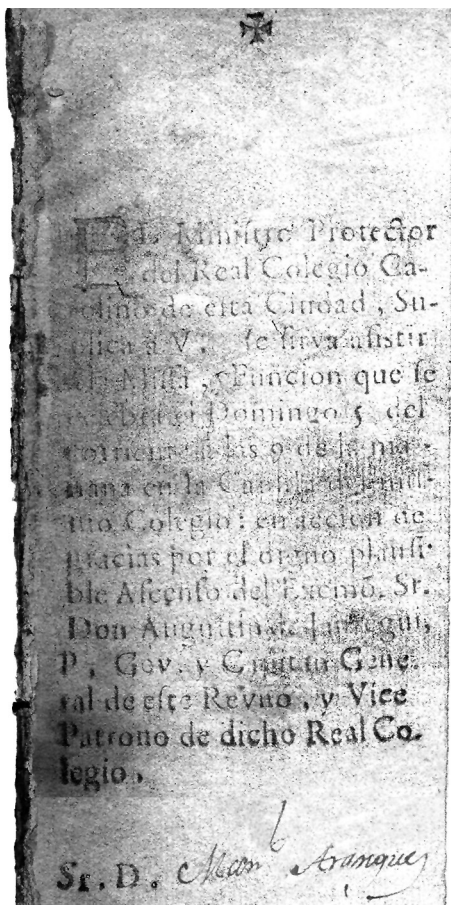 El Ministro Protector
del Real Colegio Ca-
rolino de esta Ciudad, Su-
plica á V. se sirva asistir
á la Missa, y Funcion que se
celebra el Domingo 5 del
corriente á las 9 de la ma-
ñana en la Capilla del mis-
mo Colegio: en accion de
gracias por el digno plausi-
ble Ascenso del Excmô. Sr.
Don Augustin de Jauregui,
P. Gov. y Capitan Gene-
ral de este Reyno, y Vice
Patrono de dicho Real Co-
legio.
Sr. D. Aranguez